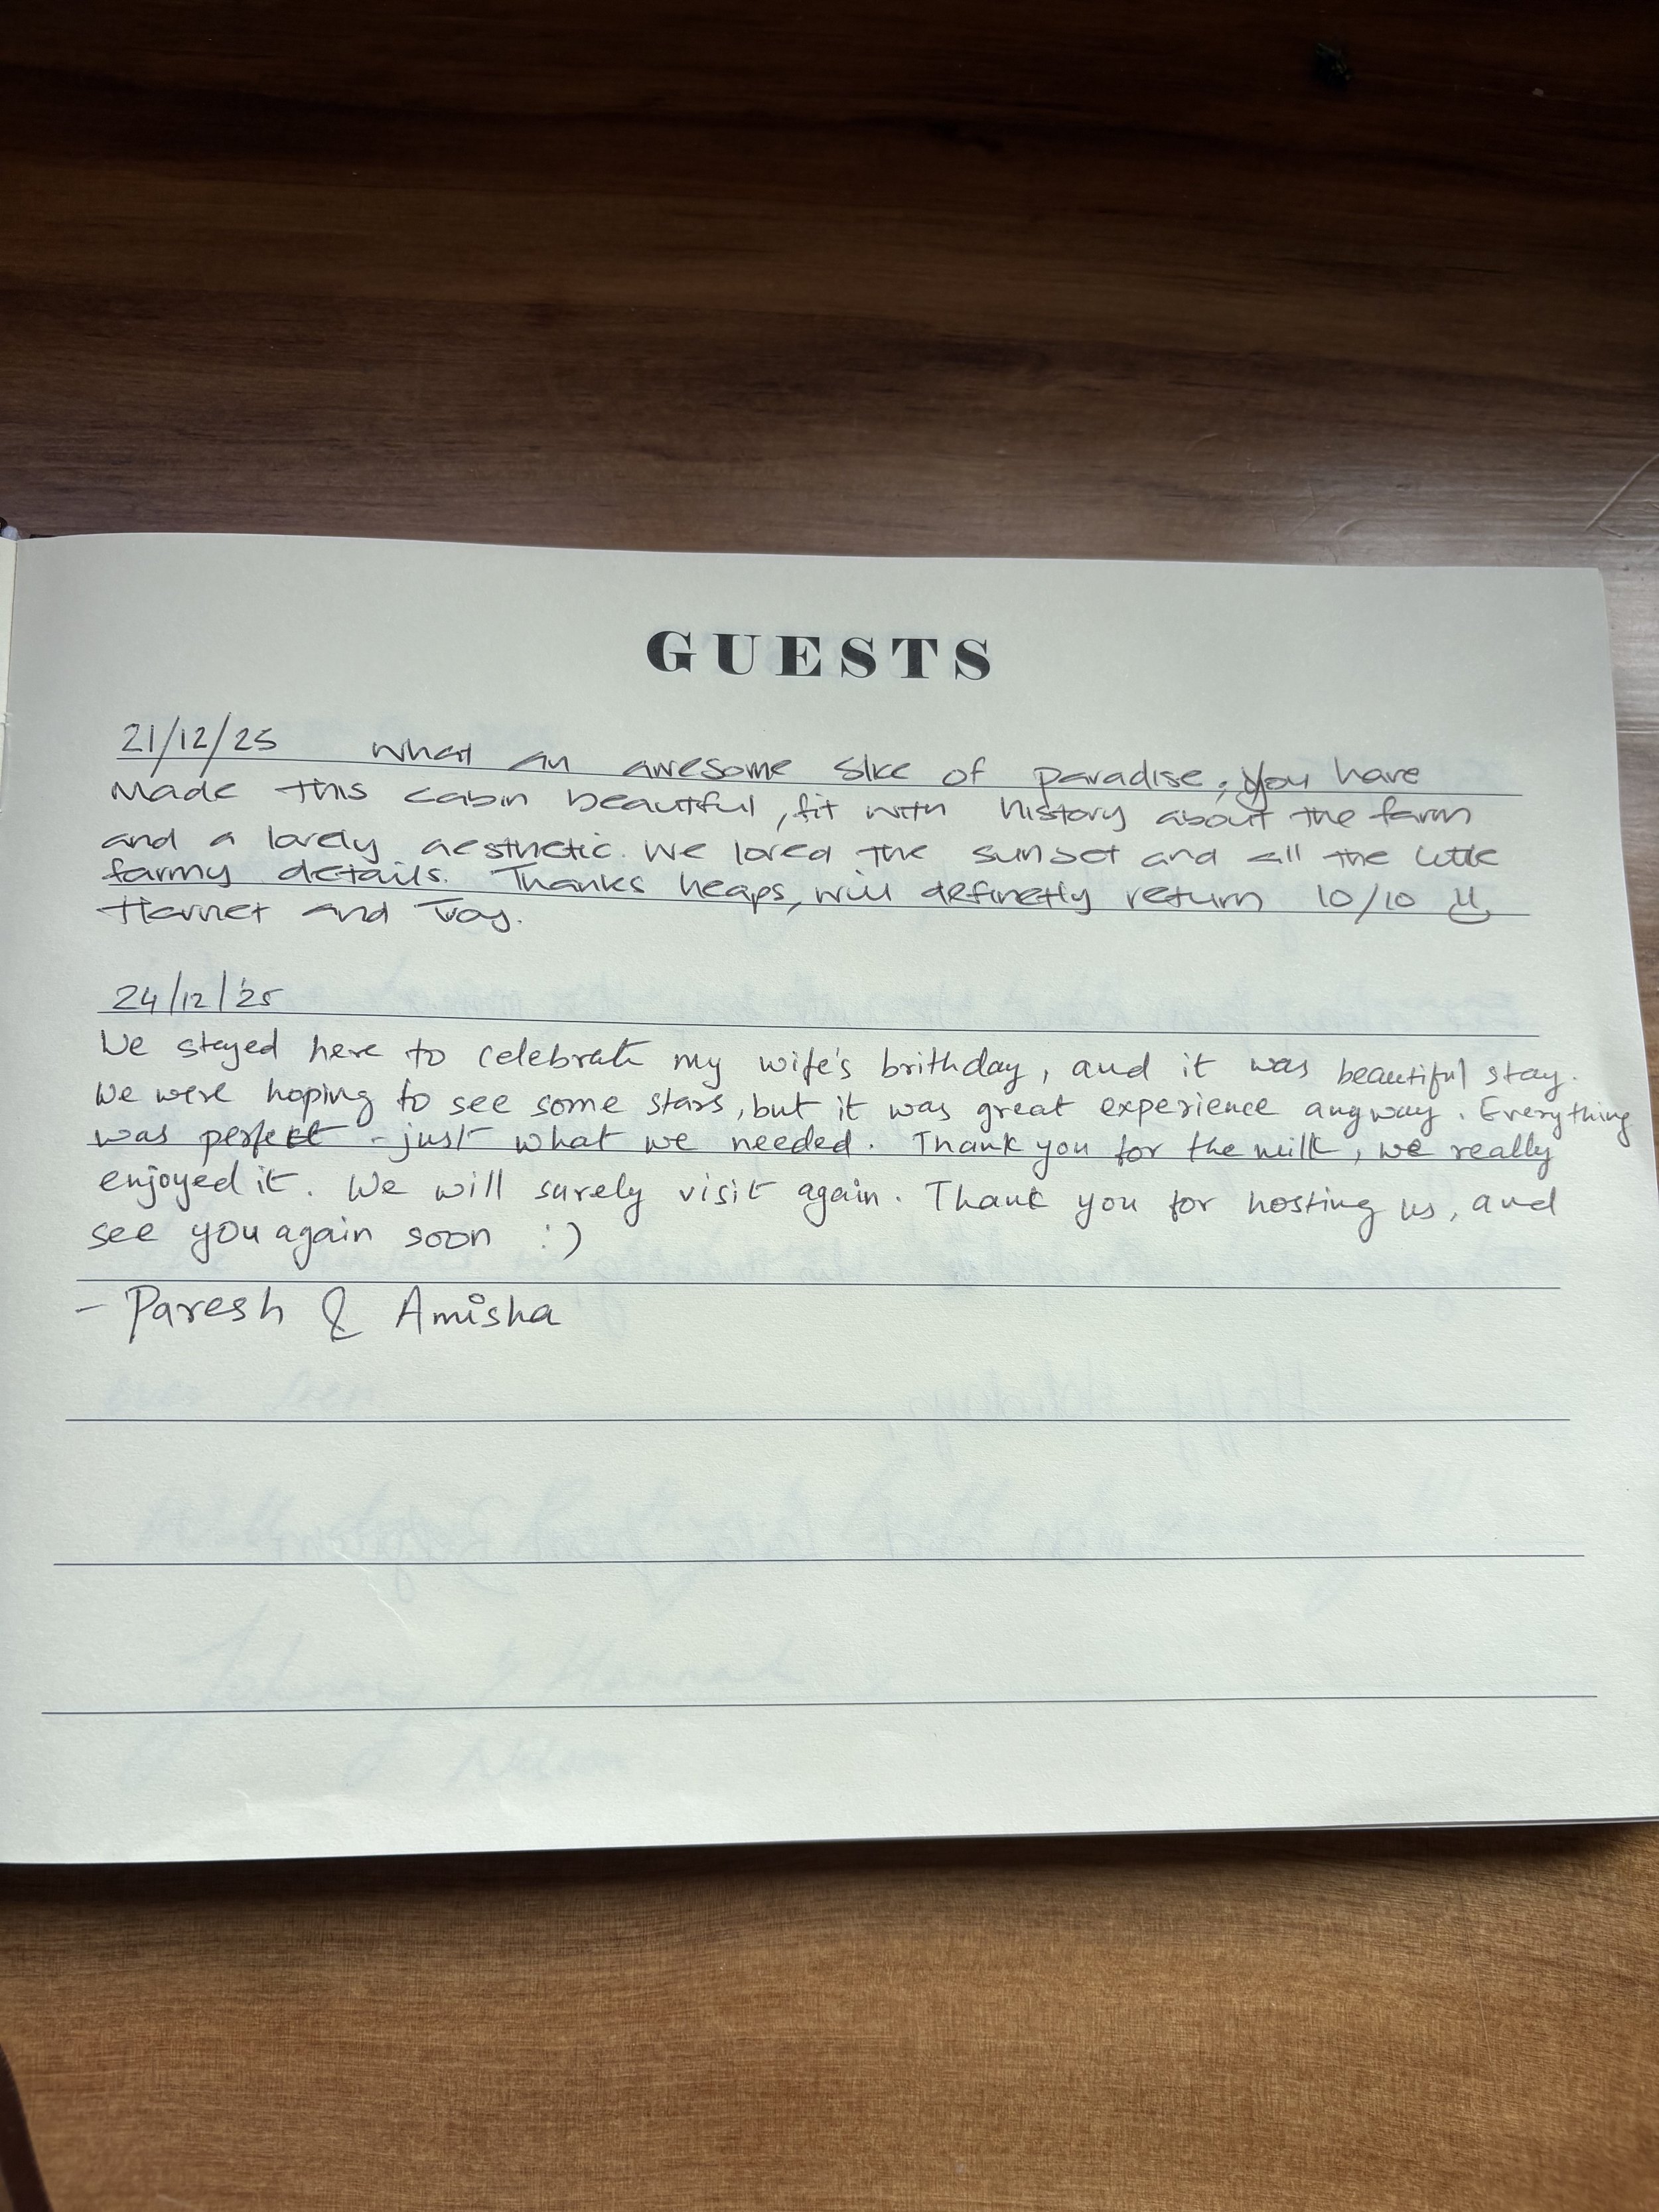 GUESTS
21/12/25 What an awesome slice of paradise, you have
Made this cabin beautiful, fit with history about the farm
and a lovely aesthetic. We loved the sunset and all the little
farmy details. Thanks heaps, will definetly return 10/10
and
24/12/25
We stayed here to celebrate my wife's brithday, and it was beautiful stay.
We were hoping to see some stars, but it was great experience angway. Everything
was perfect - just what we needed. Thank you for the milk, we really
enjoyed it. We will surely visit again. Thank you for hosting us, and
see you again soon :)
- Paresh & Amisha